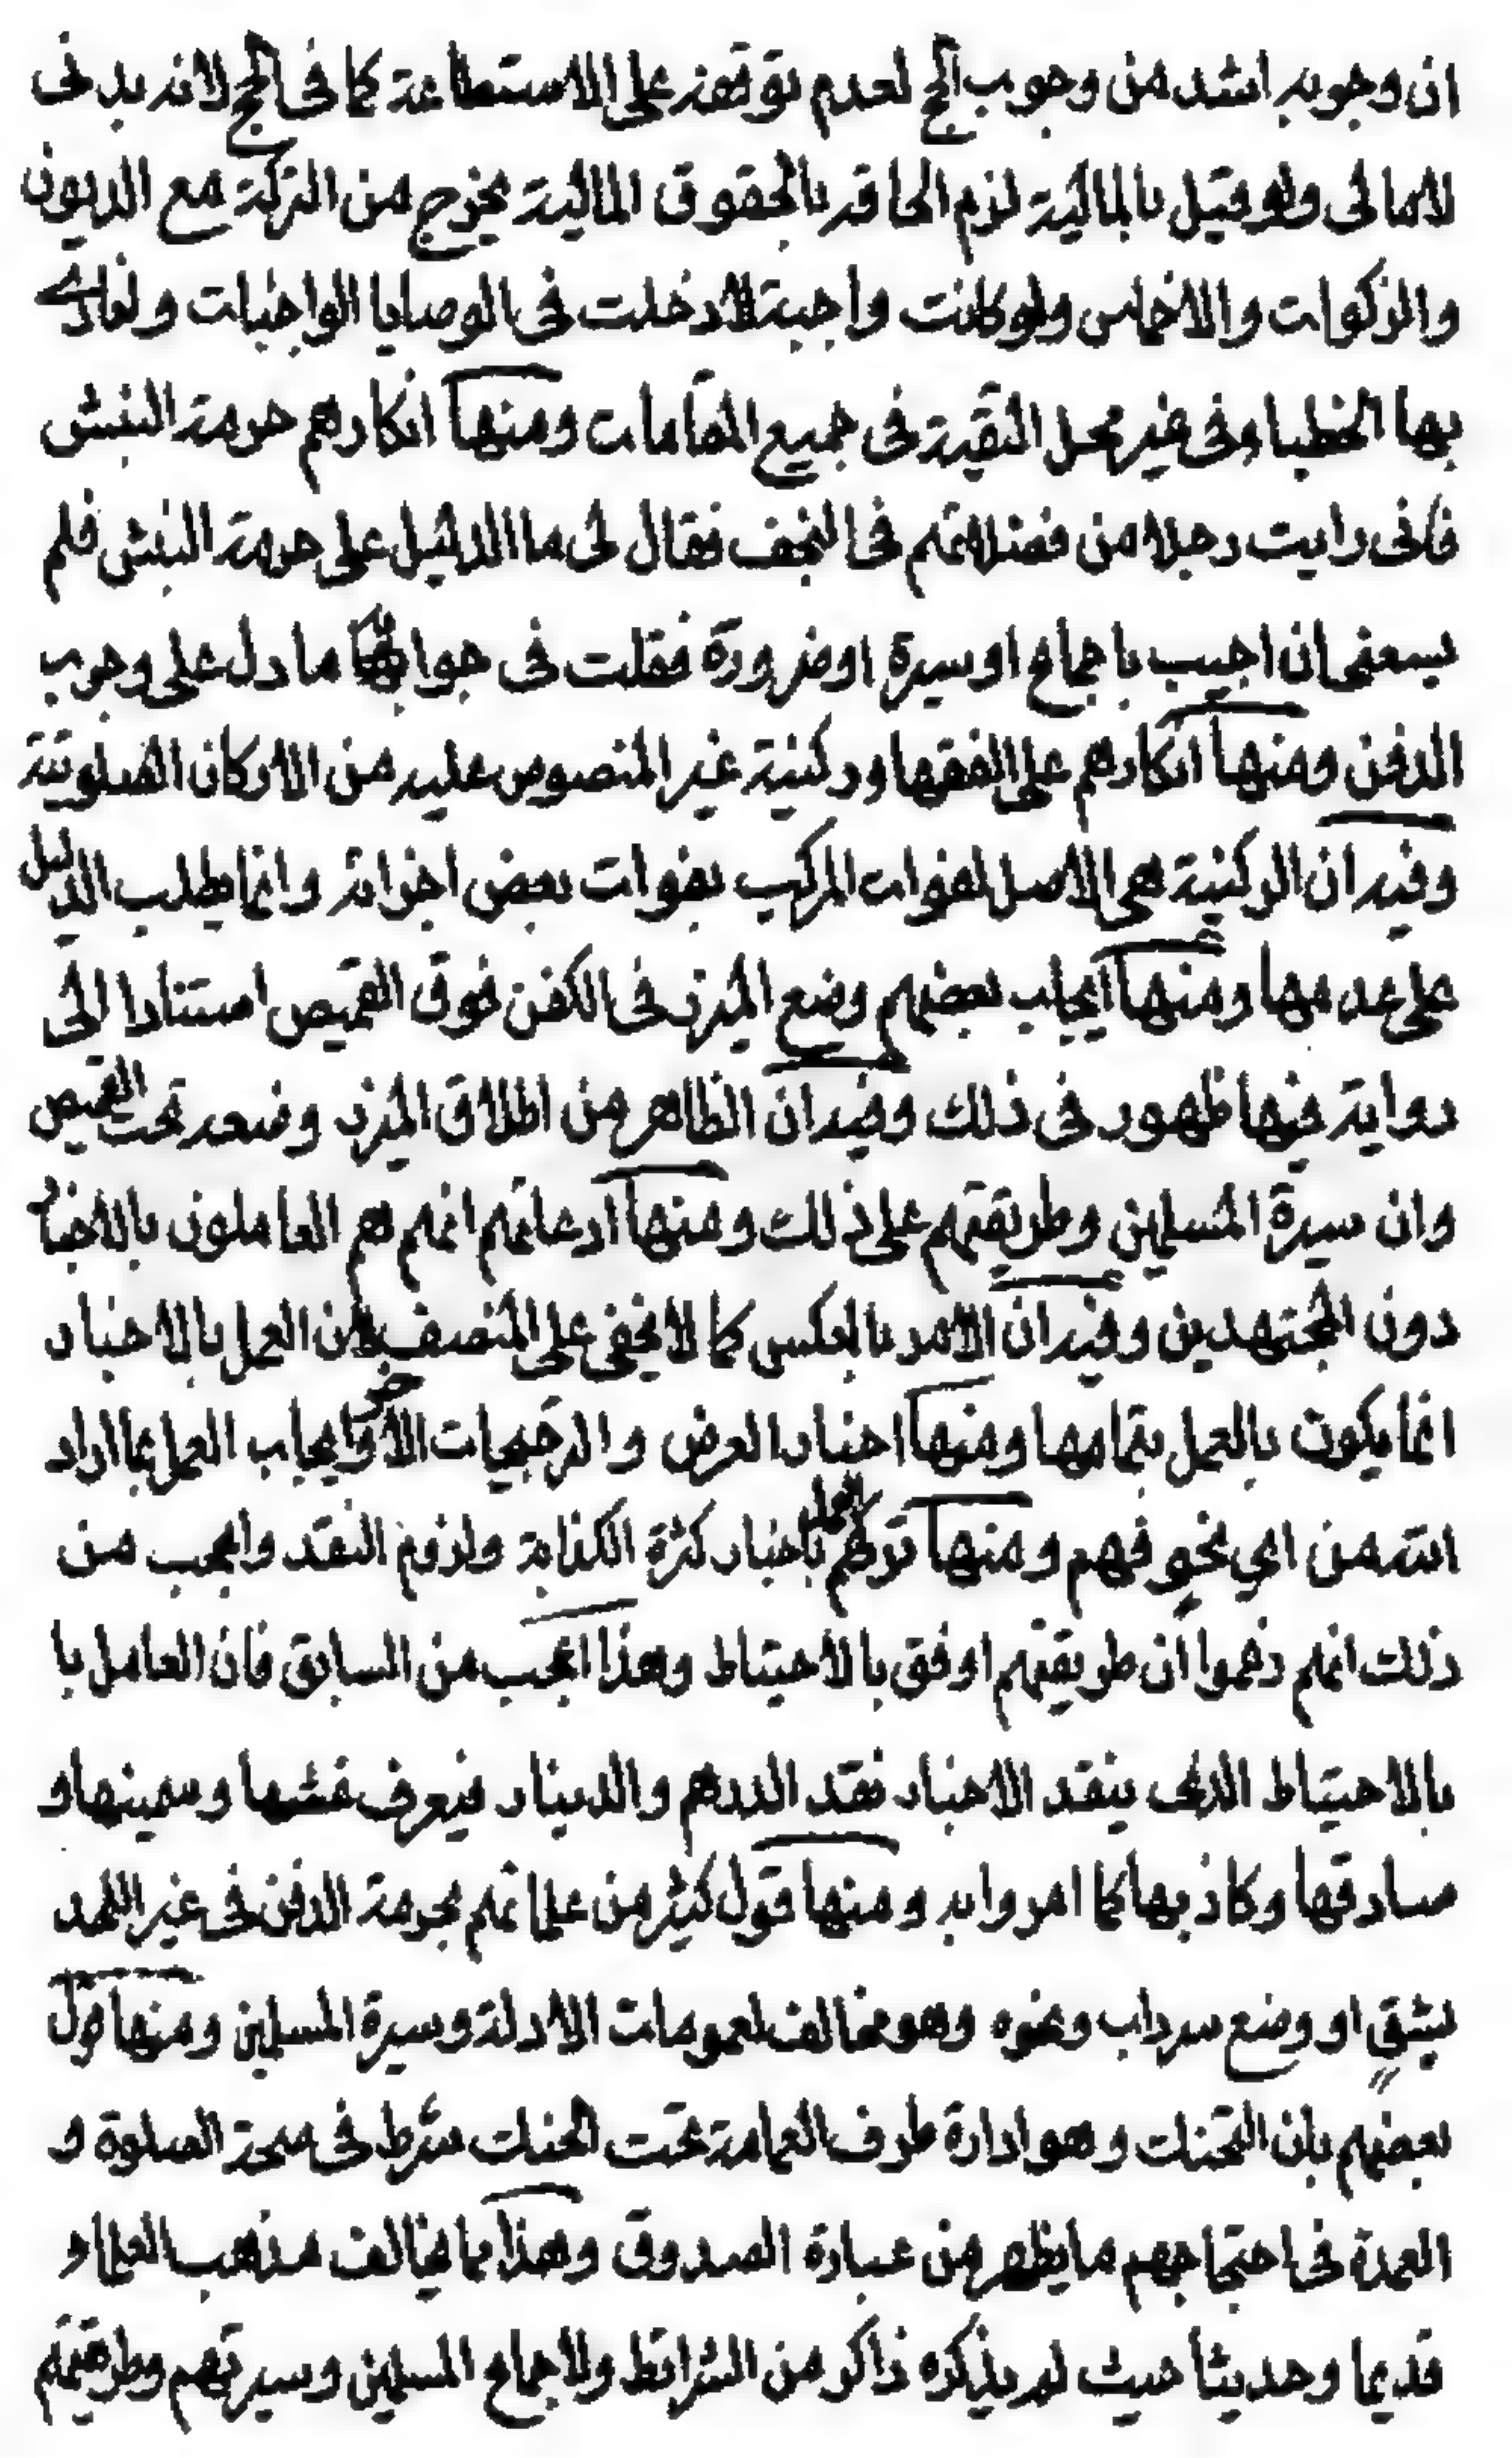 ان وجوبه اشد من وجوب الحج لعدم توقفه على الاستطاعة كما فى الحج لانه بدنى
لا مالى ولو قيل بالمالية لزم الحاقه بالحقوق المالية يخرج من التركة مع الديون
والزكوات والاخماس ولو كانت واجبة لادخلت فى الوصايا الواجبات ولنادى
بها الخطباء فى غير محل التقية فى جميع المقامات ومنها انكارهم حرمة النبش
فانى رايت رجلا من فضلائهم فى النجف فقال لى ما الدليل على حرمة النبش فلم
يسعنى ان اجيب باجماع او سيرة او ضرورة فقلت فى جوابه ما دل على وجوب
الدفن ومنها انكارهم على الفقهاء ركنية غير المنصوص عليه من الاركان الصلوتية
وفيه ان الركنية هى الاصل لفوات المركب بفوات بعض اجزائه وانما يطلب الدليل
على عدمها ومنها ايجاب بعضهم وضع الميزر فى الكفن فوق القميص استنادا الى
رواية فيها ظهور فى ذلك وفيه ان الظاهر من اطلاق الميزر وضعه تحت القميص
وان سيرة المسلمين وطريقتهم على ذلك ومنها ادعائهم انهم هم العاملون بالاخبار
دون المجتهدين وفيه ان الامر بالعكس كما لا يخفى على المنصف لان العمل بالاخبار
انما يكون بالعمل بتمامها ومنها اخبار العرض والترجيحات الاخر وايجاب العمل بما اراد
الله من اى نحو فهم ومنها تركهم العمل باخبار كثرة الكذابة ولزوم النقد واعجب من
ذلك انهم زعموا ان طريقتهم اوفق بالاحتياط وهذا اعجب من السابق فان العامل با
بالاحتياط الذى ينقد الاخبار نقد الدرهم والدينار فيعرف غشها وسمينها و
صادقها وكاذبها كما امروا به ومنها قول كثير من علمائهم بحرمة الدفن فى غير اللحد
بشق او وضع سرداب ونحوه وهو مخالف لعمومات الادلة وسيرة المسلمين ومنها قول
بعضهم بان التحنك وهو ادارة طرف العمامة تحت الحنك شرط فى صحة الصلوة و
العمدة فى احتجاجهم ما يظهر من عبارة الصدوق وهذا مما يخالف مذهب العلماء
قديما وحديثا حيث لم يذكره ذاكر من الشرائط ولاجماع المسلمين وسيرتهم وطريقتهم